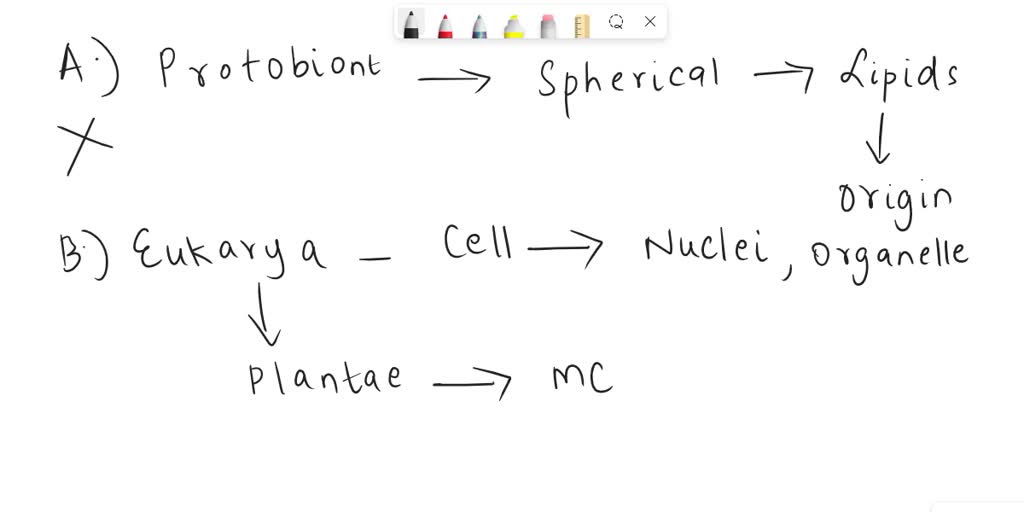 A.) Protobiont → Spherical → Lipids
X
↓
Origin
B.) Eukarya - Cell → Nuclei, Organelle
↓
Plantae → MC